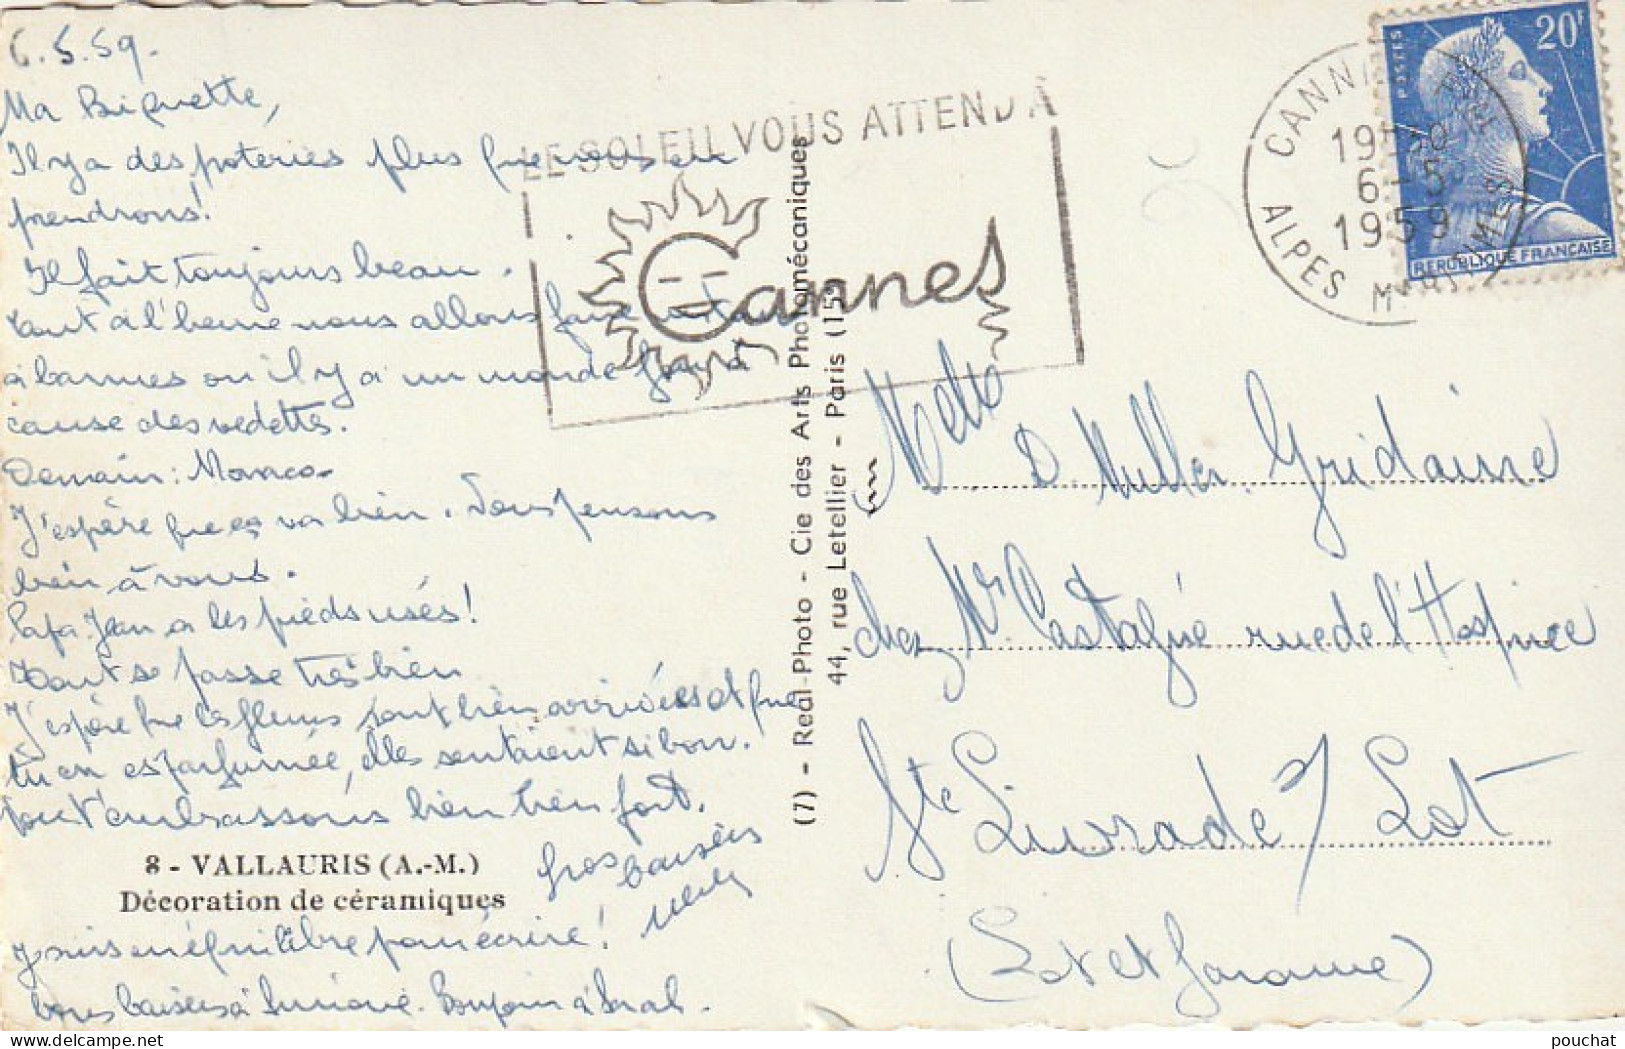 6.5.59.
Ma Biquette,
Il y a des poteries plus que nous en
prendrons!
Il fait toujours beau.
tout à l'heure nous allons faire un tour
à Cannes où il y a un monde fou à
cause des vedettes.
Demain: Monaco
J'espère que ça va bien. Nous pensons
bien à vous.
Papa Jean a les pieds usés!
Tout se passe très bien
J'espère que les fleurs sont bien arrivées et que
tu en es parfumée, elles sentaient si bon.
On t'embrassons bien bien fort.
8 - VALLAURIS (A.-M.)
Décoration de céramiques
Gros baisers
J suis en équilibre pour écrire!
bons baisers à. Bonjour à
LE SOLEIL VOUS ATTEND À
Cannes
(7) - Real-Photo - Cie des Arts Photomécaniques
44, rue Letellier - Paris (15e)
CANNES
ALPES MARITIMES
19 30
6 - 5
1959
POSTES
20F
REPUBLIQUE FRANÇAISE
Melle D Muller. Gridaine
chez Mr Castagné rue de l'Hospice
Ste Livrade s/ Lot
(Lot et Garonne)
pouchat